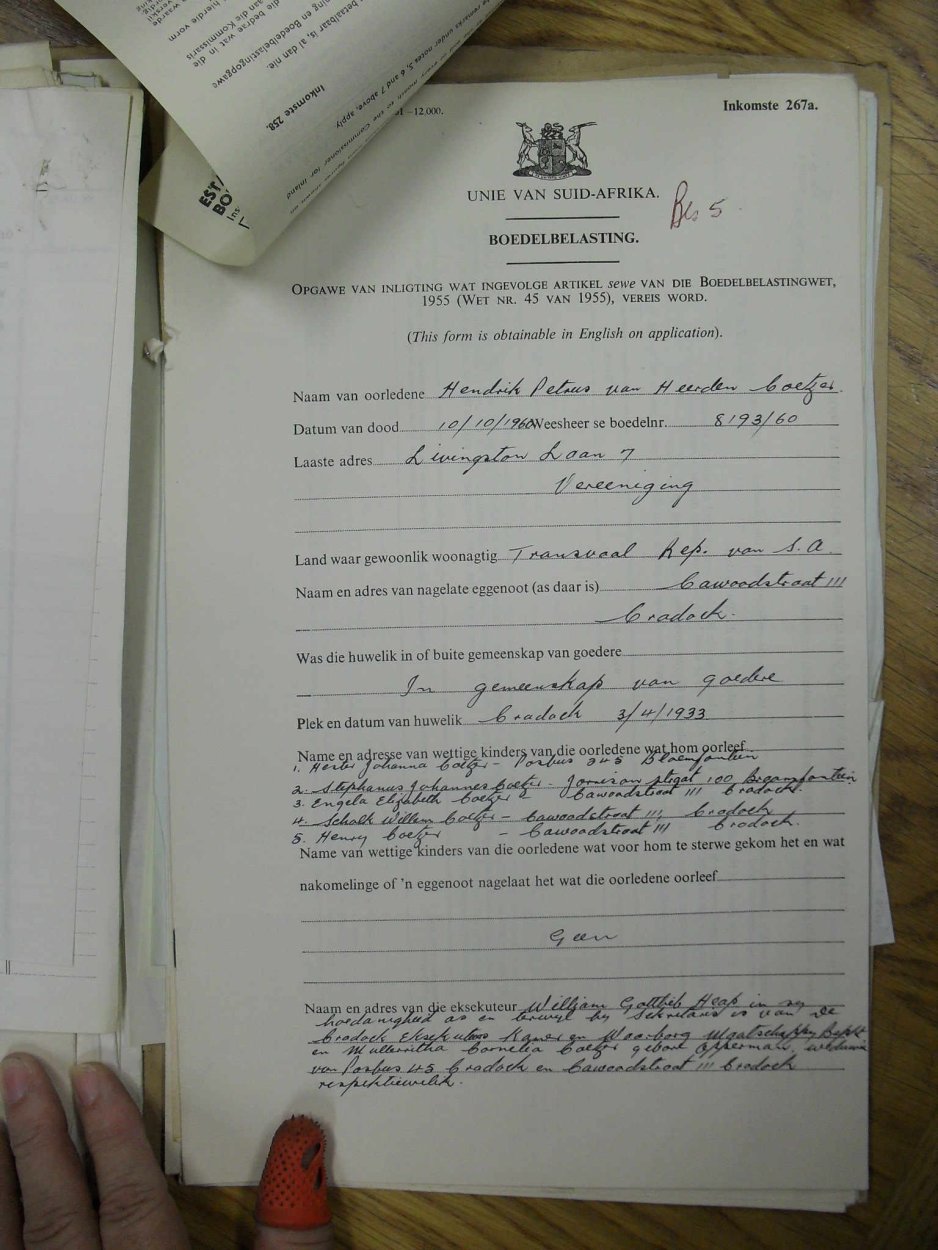 betaalbaar is, al dan nie.
Inkomste 258.
remarks under notes 5, 6 and 7 above, apply.
-12,000.
Inkomste 267a.
UNIE VAN SUID-AFRIKA.
Bls 5
BOEDELBELASTING.
OPGAWE VAN INLIGTING WAT INGEVOLGE ARTIKEL sewe VAN DIE BOEDELBELASTINGWET,
1955 (WET NR. 45 VAN 1955), VEREIS WORD.
(This form is obtainable in English on application).
Naam van oorledene Hendrik Petrus van Heerden Coetzer.
Datum van dood 10/10/1960 Weesheer se boedelnr. 8193/60
Laaste adres Livingston Laan 7
Vereeniging
Land waar gewoonlik woonagtig Transvaal Rep. van S.A.
Naam en adres van nagelate eggenoot (as daar is) Cawoodstraat 111
Cradock.
Was die huwelik in of buite gemeenskap van goedere
In gemeenskap van goedere
Plek en datum van huwelik Cradock 3/4/1933
Name en adresse van wettige kinders van die oorledene wat hom oorleef
1. Hester Johanna Coetzer - Posbus 345 Bloemfontein
2. Stephanus Johannes Coetzer - Jorrison straat 100 Braamfontein
3. Engela Elizabeth Coetzer Cawoodstraat 111 Cradock.
4. Schalk Willem Coetzer - Cawoodstraat 111, Cradock
5. Henry Coetzer - Cawoodstraat 111 Cradock.
Name van wettige kinders van die oorledene wat voor hom te sterwe gekom het en wat
nakomelinge of 'n eggenoot nagelaat het wat die oorledene oorleef
Geen
Naam en adres van die eksekuteur William Gottlieb Heap in sy
hoedanigheid as en terwyl hy Sekretaris is van De
Cradock Eksekuteurs Kamer en Waarborg Maatschappy Bepkt
en Cornelia Coetzer gebore Opperman, weduwee
van Posbus 45 Cradock en Cawoodstraat 111 Cradock
respektiewelik.